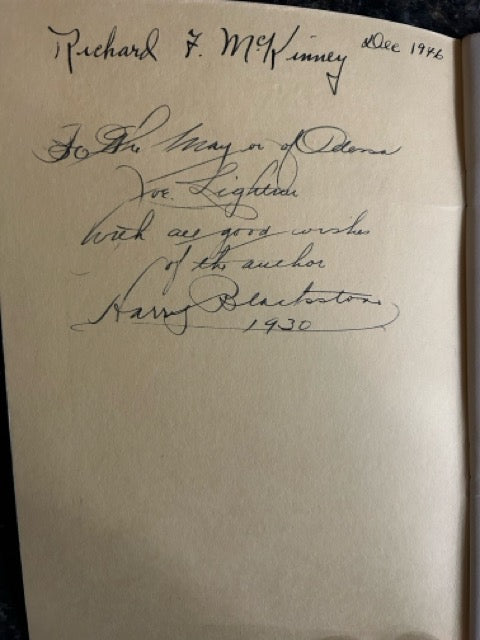 Richard F. McKinney Dec 1946
To the Mayor of Odessa
Joe.
with all good wishes
of the author
Harry Blackstone
1930